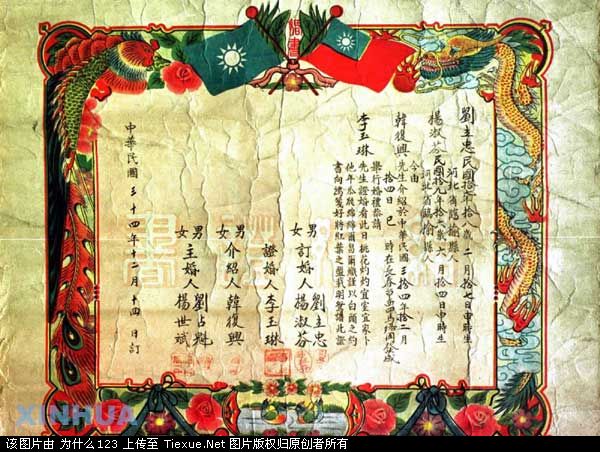 婚書
劉立忠民國拾年拾八歲二月拾七日申時生
河北省臨榆縣人
楊淑芬民國拾年拾六歲七月拾四日申時生
河北省臨榆縣人
今由
韓復興先生介紹於中華民國三拾四年拾二月
拾四日巳時在長春市四馬路同發成
舉行婚禮恭請
李玉琳先生證婚看此日桃花灼灼宜室宜家卜
他年瓜瓞綿綿爾昌爾熾謹以白頭之約
書向鴻箋好將紅葉之盟載明鴛譜此證
男女訂婚人劉立忠楊淑芬
證婚人李玉琳
介紹人韓復興
男女主婚人劉占魁楊世斌
中華民國三十四年十二月十四日訂
XINHUA
该图片由 为什么123 上传至 Tiexue.Net 图片版权归原创者所有